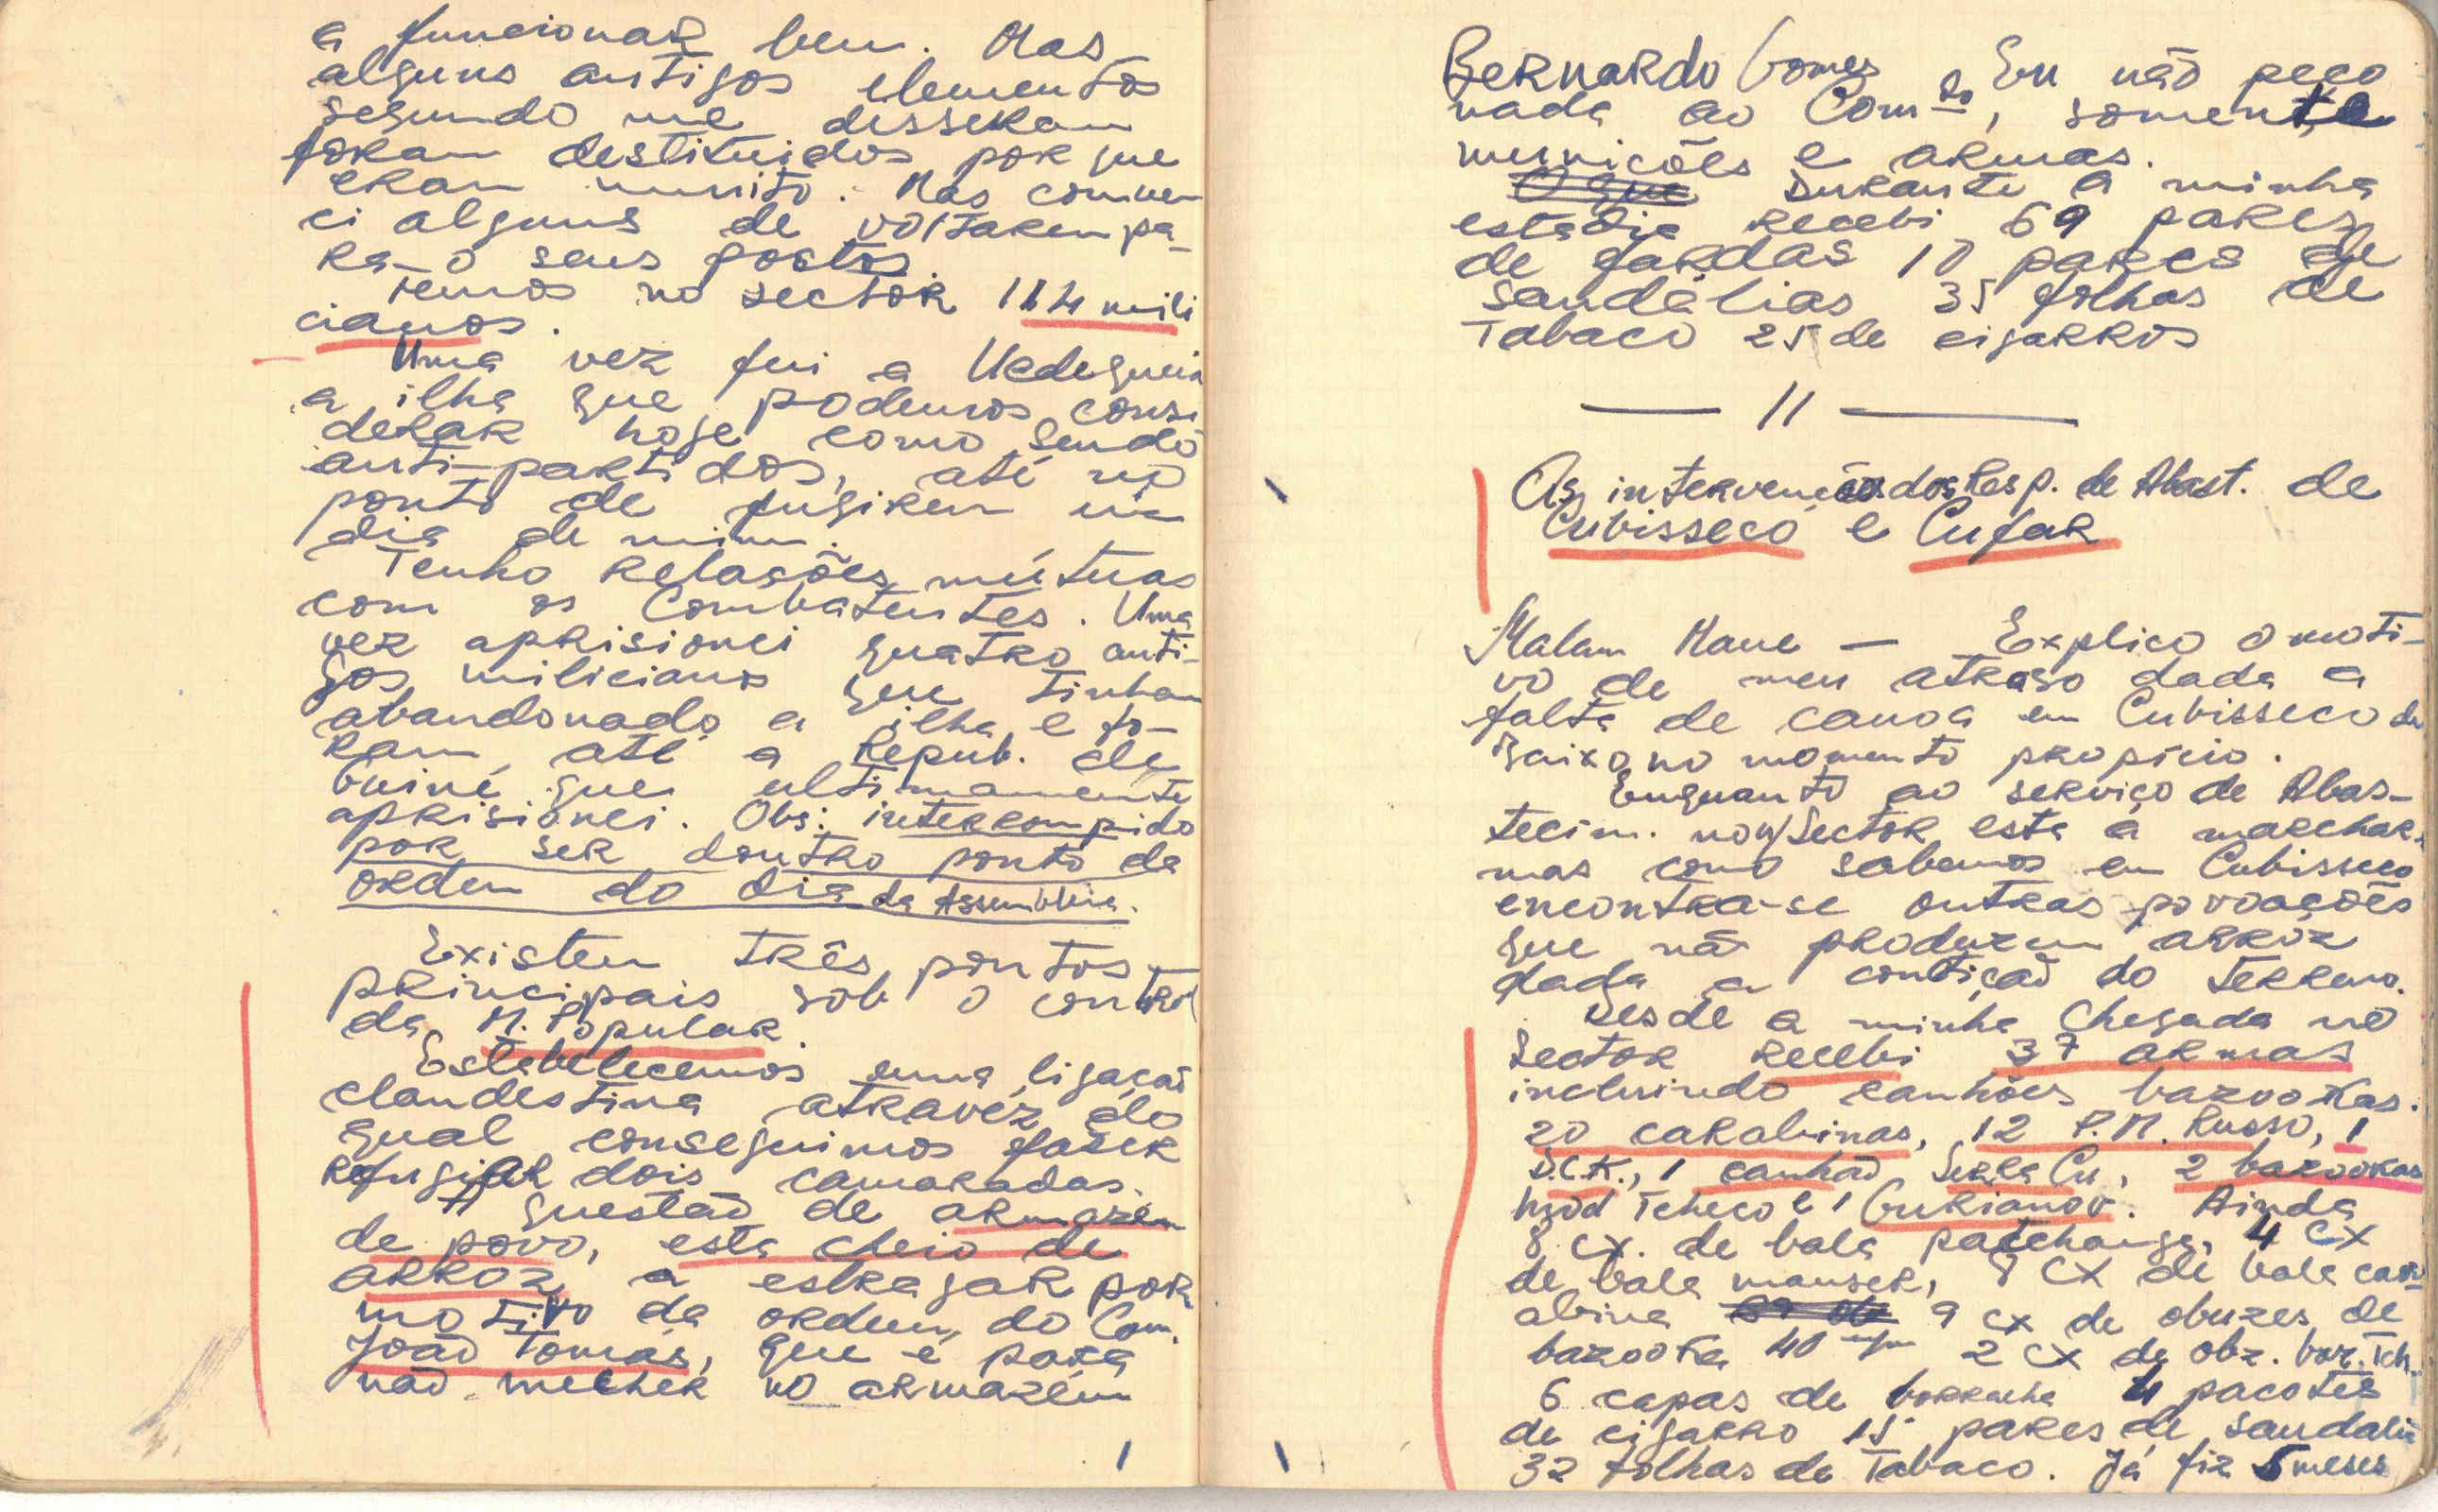 a funcionar bem. Mas
alguns antigos elementos
segundo me disseram
foram destituidos porque
eram muito. Mas conven
ci alguns de voltarem pa-
ra-o seus postos.
Temos no sector 114 mili
cianos.
Uma vez fui a
a ilha que podemos consi
derar hoje como sendo
anti-partidos, até no
ponto de fugirem um
dia de mim.
Tenho relasões mútuas
com os Combatentes. Uma
vez aprisionei quatro anti-
gos milicianos que tinham
abandonado a ilha e fo-
ram até a Repub. de
Guiné que ultimamente
aprisionei. Obs: interrompido
por ser doutro ponto da
ordem do dia da Assembleia.
Existem três pontos
principais sob o control
da M. Popular
Estabelecemos uma ligação
clandestina atravéz do
qual conseguimos faser
refugiar dois camaradas.
A questão de armazém
de povo, esta cheio de
arroz a estragar por
motivo da ordem do Com.
João Tomás, que é para
não mecher no armazém
Bernardo Gomes Eu não peço
nada ao Com.to, somente
munições e armas.
O que Durante a minha
estadia recebi 69 pares
de fardas 10 pares de
sandálias 35 folhas de
Tabaco 25 de cigarros
— // —
As intervenções dos Resp. de Abast. de
Cubisseco e Cufar
Malam Mane — Explico o moti-
vo de meu atraso dada a
falta de canoa em Cubisseco de
Baixo no momento propício.
Enquanto ao serviço de Abas-
tecim. no n/Sector esta a marchar.
mas como sabemos em Cubisseco
encontra-se outras povoações
que não produzem arroz
dada a contição do terreno.
Desde a minha chegada no
Sector recebi 37 armas
incluindo canhões bazookas.
20 carabinas, 12 P.M. Russo, 1
D.C.K., 1 canhão Serra Cu, 2 bazookas
mod Tcheco e 1 Gurianov. Ainda
8 cx. de bala patchanga, 4 cx
de bala mauser, 8 cx de bala car
abina 9 cx de obuzes de
bazooka 40 2 cx de obz. baz. Tch.
6 capas de borracha 4 pacotes
de cigarro 15 pares de sandalia
32 folhas de Tabaco. Já fiz 5 meses